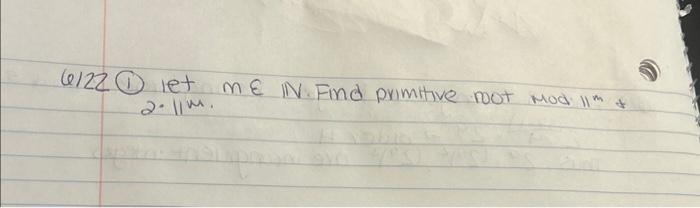 6/22 ① let m ∈ ℕ. Find primitive root mod 11^m &
2·11^m.